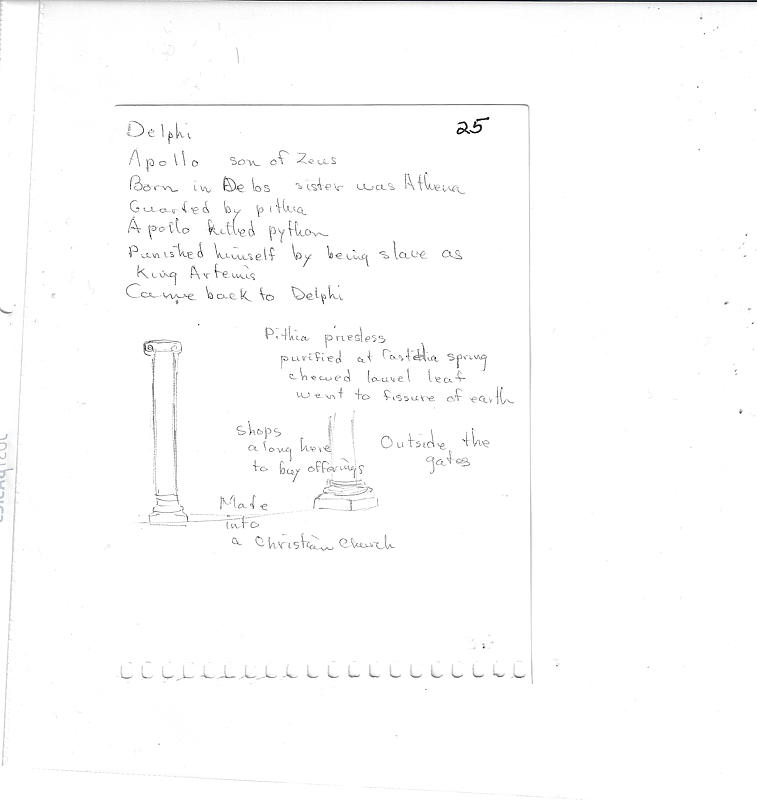 25
Delphi
Apollo son of Zeus
Born in Delos sister was Athena
Guarded by pithia
Apollo killed python
Punished himself by being slave as
King Artemis
Came back to Delphi
Pithia priesless
purified at Castelia spring
chewed laurel leaf
went to fissure of earth
shops
along here
to buy offerings
Outside the
gates
Made
into
a Christian Church